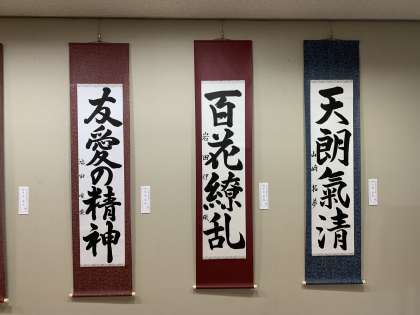 天朗氣清
百花繚乱
友愛の精神